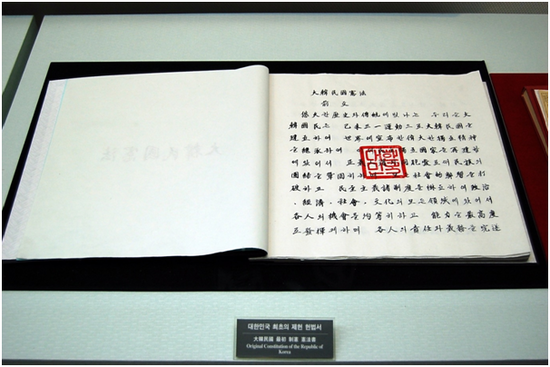 大韓民國憲法
前文
悠久한歷史와傳統에빛나는 우리들大
韓國民은 己未三一運動으로大韓民國을
建立하여 世界에宣布한偉大한獨立精神
을繼承하여 이제 立國家를再建함
에있어서 正義 同胞愛로써民族의
團結을鞏固히하 社會的弊習을打
破하고 民主主義諸制度를樹立하여政治
,經濟,社會,文化의모든領域에있어서
各人의機會를均等히하고 能力을最高度
로發揮케하며 各人의責任과義務를完遂
대한민국 최초의 제헌 헌법서
大韓民國 最初 制憲 憲法書
Original Constitution of the Republic of
Korea